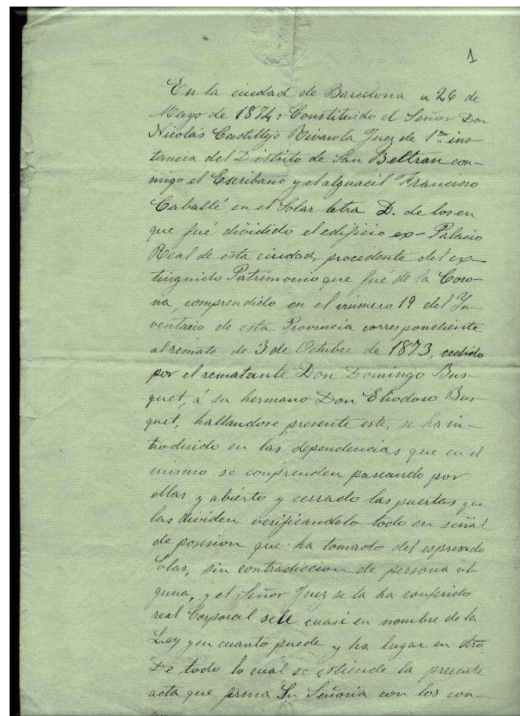 1
En la ciudad de Barcelona a 26 de
Mayo de 1874: Constituido el Señor Don
Nicolás Castillejo Rivarola Juez de 1ra ins-
tancia del Distrito de San Beltran con-
migo el Escribano y el alguacil Francisco
Caballé en el Solar letra D. de los en
que fué dividido el edificio ex-Palacio
Real de esta ciudad, procedente del ex-
tinguido Patrimonio que fue de la Coro-
na, comprendido en el número 19 del In-
ventario de esta Provincia correspondiente
al remate de 3 de Octubre de 1873, cedido
por el rematante Don Domingo Bus-
quet, a su hermano Don Eliodoro Bus-
quet, hallandose presente este, se ha in-
troducido en las dependencias que en el
mismo se comprenden paseando por
ellas y abierto y cerrado las puertas que
las dividen verificandolo todo en señal
de posesion que ha tomado del espresado
Solar, sin contradiccion de persona al-
guna, y el Señor Juez se la ha conferido
real Corporal seu cuasi en nombre de la
Ley y en cuanto puede y ha lugar en dro
De todo lo cual se estiende la presente
acta que firma Su Señoria con los con-